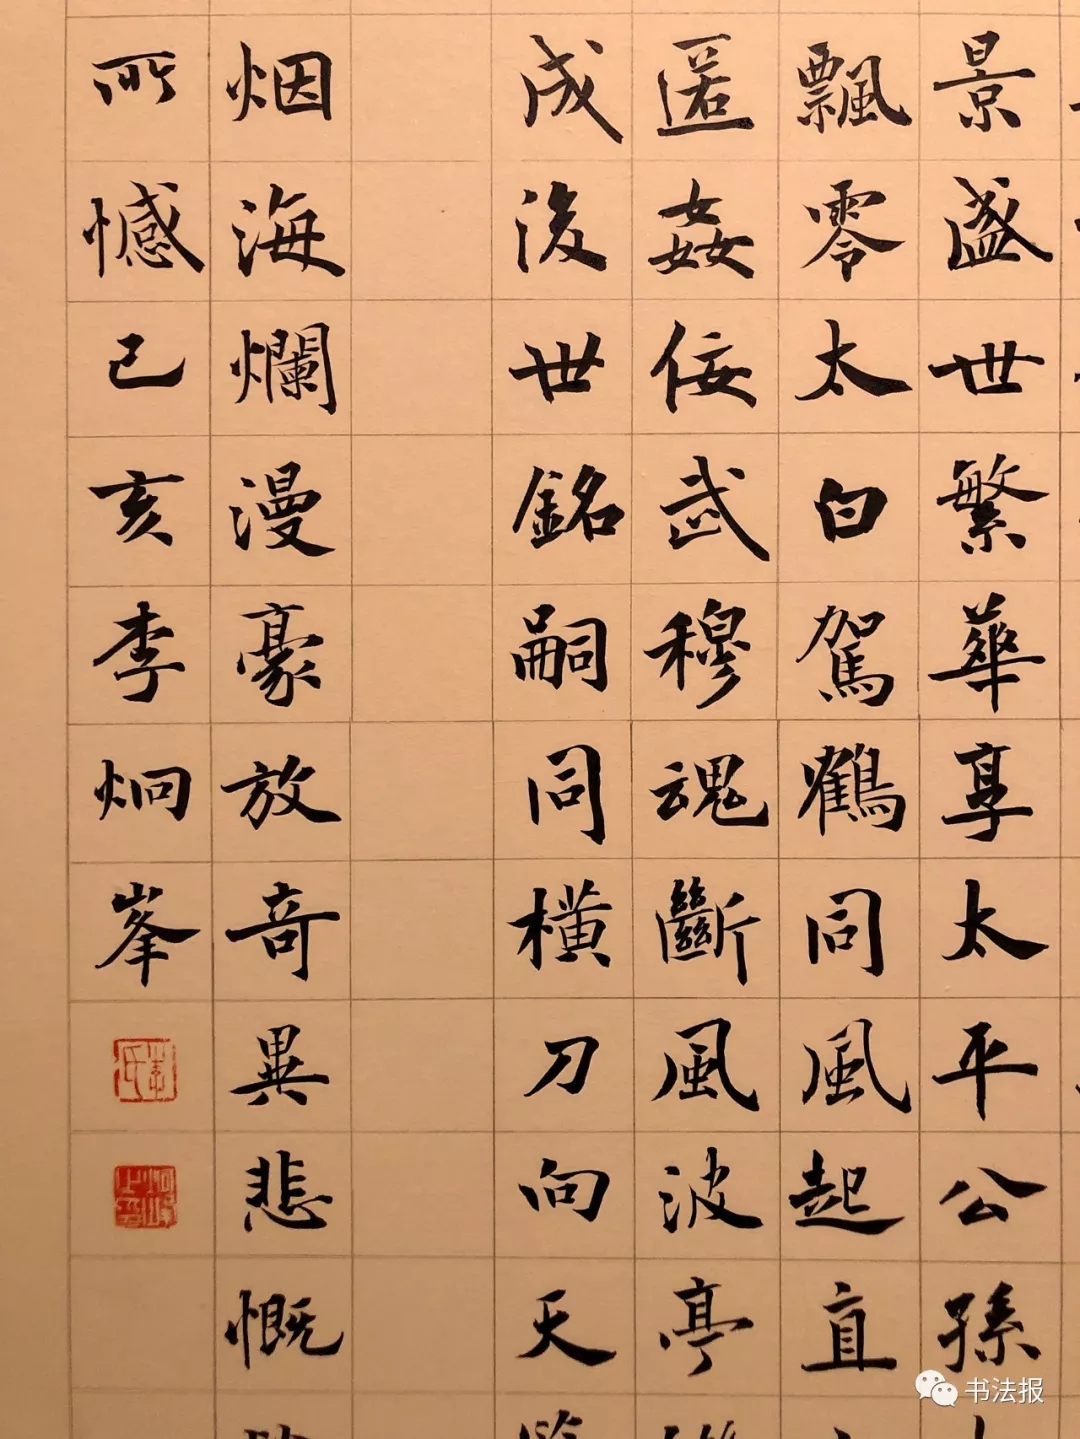 景盛世繁華享太平公孫
飄零太白駕鶴同風起直
匿姦佞武穆魂斷風波亭
成後世銘嗣同横刀向天
烟海爛漫豪放奇異悲慨
所憾己亥李炯峯
李氏
炯峰之印
书法报